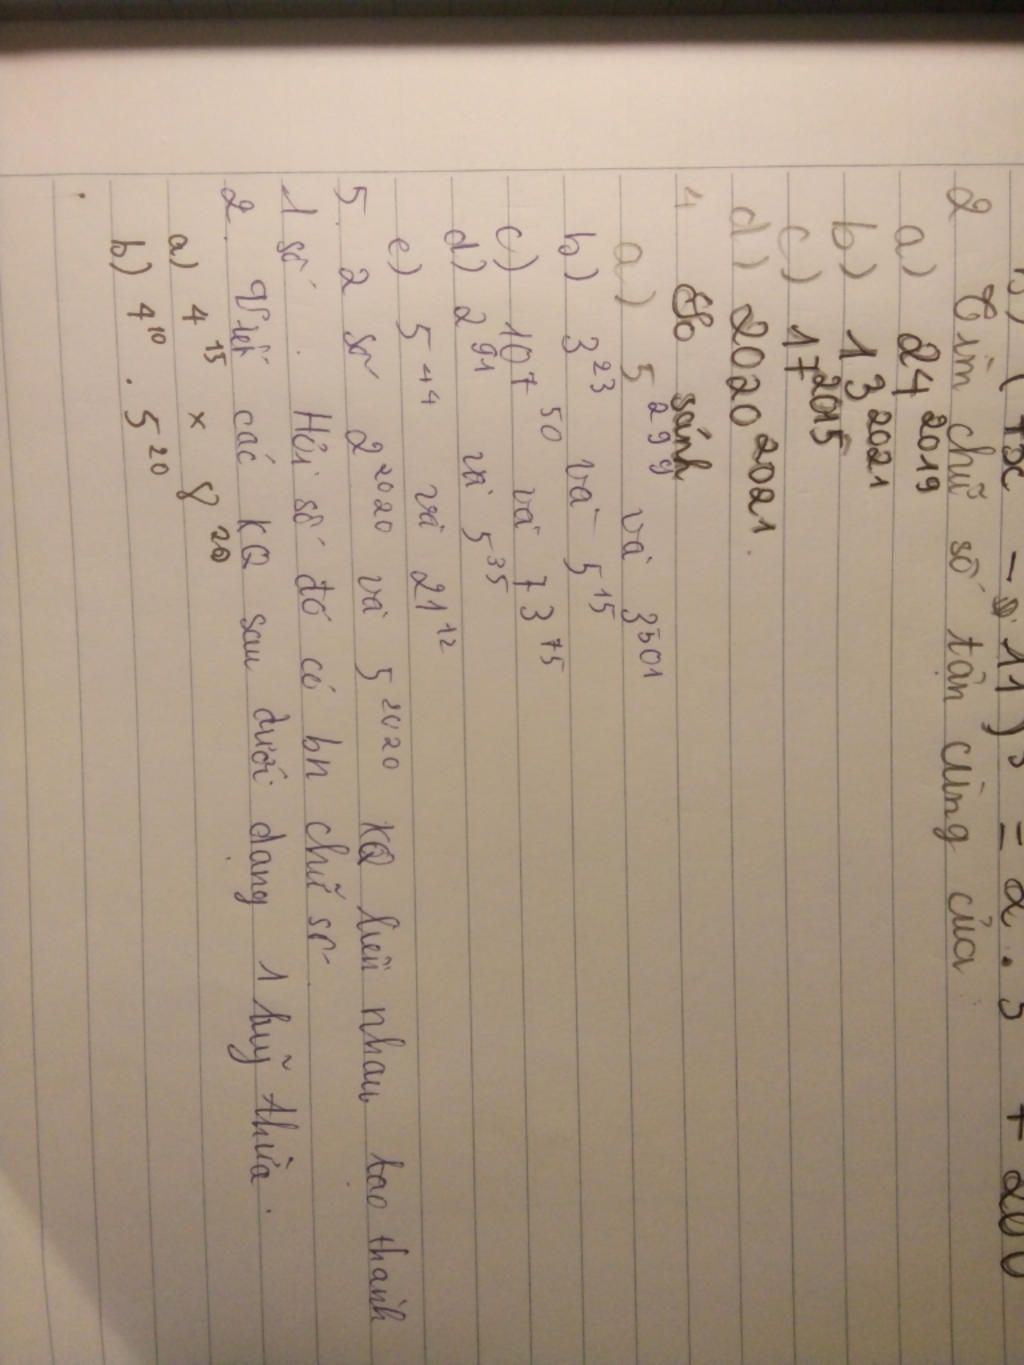 (7x - 11)³ = 2 . 5 + 200
2 Tìm chữ số tận cùng của
a) 24²⁰¹⁹
b) 13²⁰²¹
c) 17²⁰¹⁵
d) 2020²⁰²¹.
4 So sánh
a) 5²⁹⁹ và 3⁵⁰¹
b) 3²³ và 5¹⁵
c) 107⁵⁰ và 73⁷⁵
d) 2⁹¹ và 5³⁵
e) 5⁴⁴ và 21¹²
5. 2 số 2²⁰²⁰ và 5²⁰²⁰ KQ liền nhau tạo thành
1 số. Hỏi số đó có bn chữ số
2. Viết các KQ sau dưới dạng 1 luỹ thừa.
a) 4¹⁵ × 8²⁰
b) 4¹⁰ . 5²⁰